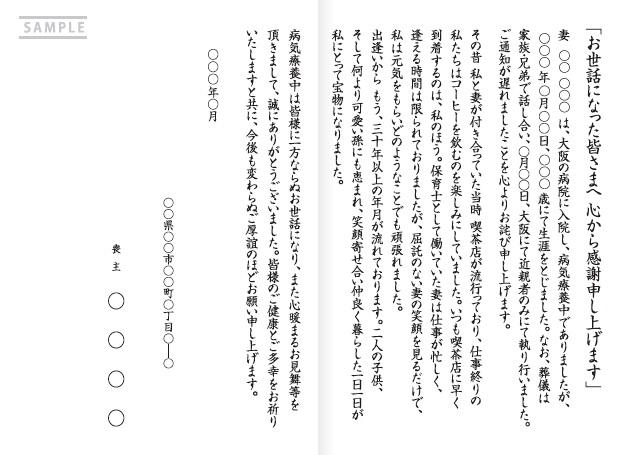 SAMPLE
「お世話になった皆さまへ 心から感謝申し上げます」
妻 〇〇 〇〇〇 は、大阪の病院に入院し、病気療養中でありましたが、
〇〇〇年〇月〇〇日、〇〇〇歳にて生涯をとじました。なお、葬儀は
家族・兄弟で話し合い、〇月〇〇日、大阪にて近親者のみにて執り行いました。
ご通知が遅れましたことを心よりお詫び申し上げます。
その昔 私と妻が付き合っていた当時 喫茶店が流行っており、仕事終りの
私たちはコーヒーを飲むのを楽しみにしていました。いつも喫茶店に早く
到着するのは、私のほう。保育士として働いていた妻は仕事が忙しく、
逢える時間は限られておりましたが、屈託のない妻の笑顔を見るだけで、
私は元気をもらいどのようなことでも頑張れました。
出逢いから もう、三十年以上の年月が流れております。二人の子供、
そして何より可愛い孫にも恵まれ、笑顔寄せ合い仲良く暮らした一日一日が
私にとって宝物になりました。
病気療養中は皆様に一方ならぬお世話になり、また心暖まるお見舞等を
頂きまして、誠にありがとうございました。皆様のご健康とご多幸をお祈り
いたしますと共に、今後も変わらぬご厚誼のほどお願い申し上げます。
〇〇〇年〇月
〇〇県〇〇市〇〇町〇丁目〇―〇
喪主 〇〇〇〇